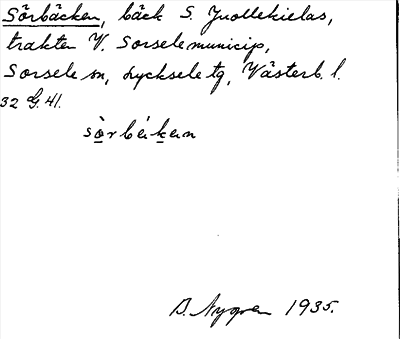 Sörbäcken, bäck S. Juollekielas,
trakten V. Sorsele municip,
Sorsele sn, Lycksele tg, Västerb. l.
32 G. 41.
sòrbékεn
B. Nygren 1935.